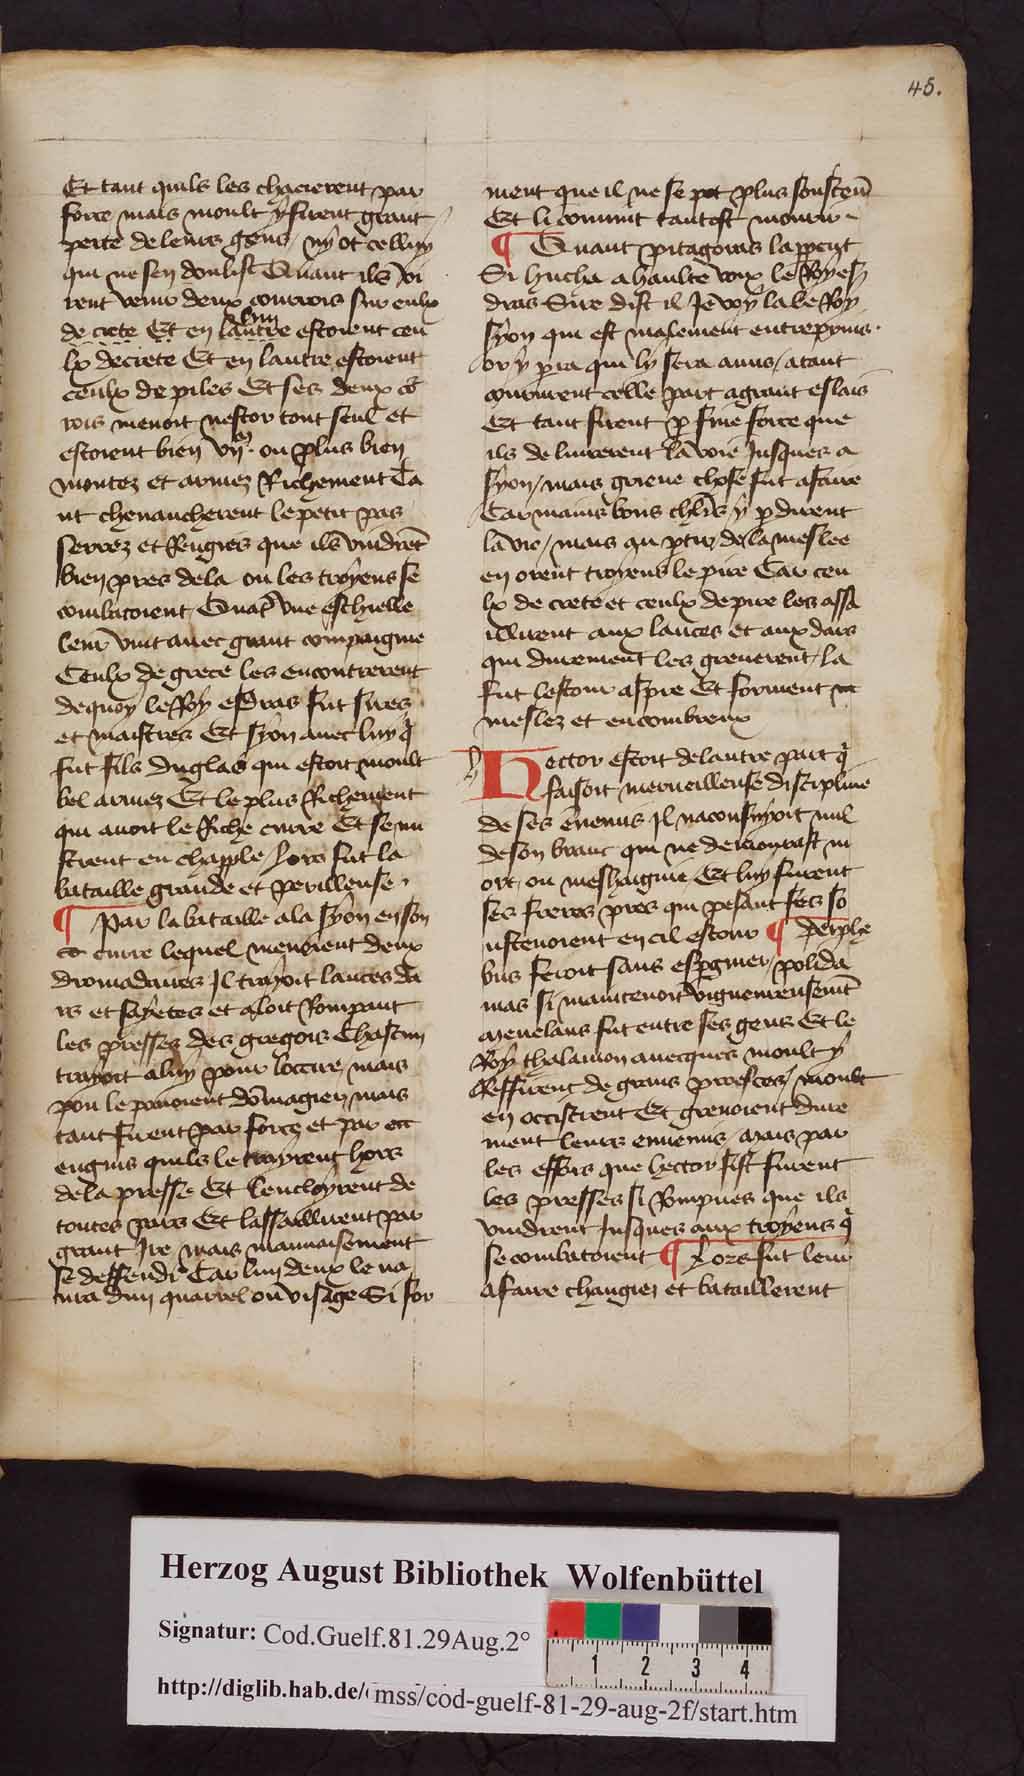 45.
Et tant quils les chacierent par
force mais moult y firent grant
perte de leurs gens / ny ot celluy
qui ne sen doulist Quant ils vi
rent venir deux conrois sur eulx
lun
de crete Et en lautre estoient ceu
lx de crete Et en lautre estoient
ceulx de piles Et ses deux cō
rois menoit nestor tout seul et
estoient bien vijm. ou plus bien
montez et armez Richement Ta
nt chevaucherent le petit pas
serrez et Rengies que ils vindrēt
bien pres de la ou les troyens se
combatoient Quāt vne eschielle
leur vint avec grant compaignie
Ceulx de grece les encontrerent
de quoy le Roy esdras fut sires
et maistres Et syon avec luy q̄
fut fils duglas qui estoit moult
bel armez Et le plus Richement
qui avoit le Riche curre Et se mi
strent en chapple / Lors fut la
bataille grande et perilleuse.
¶ Par la bataille ala syon en son
curre lequel menoient deux
dromadaires Il trayoit lances da
rs et sayetes et aloit Rompant
les presses des gregois Chascun
trayoit a luy pour loccire / mais
pou le pouoient dōmagier / mais
tant firent par force et par
engins quils le trayrent hors
de la presse Et lencloyrent de
toutes pars Et lassaillirent par
grant Ire mais mauvaisement
se deffendi Car lun deux le na
vra dun quarrel ou visage Si for
ment que il ne se pot plus soustenī
Et li convint tantost mourir.
¶ Quant pitagoras lappercut
Si hucha a haulte voix le Roy es
dras Sire dist il Je voy la le Roy
syon qui est malement entrepprins.
or y pra qui ly sera amis / atant
coururent celle part a grant eslais
Et tant firent p fine force que
ils delivrerent la voie Jusques a
syon / mais grieve chose fut a faire
Car mains bons chlrs y pdirent
la vie / mais au ptir de la meslee
en orent troyens le pire Car ceu
lx de crete et ceulx de pire les assa
illirent aux lances et aux dars
qui durement les greverent / la
fut lestour aspre Et forment
meslez et encombreux
h
Hector estoit de lautre part q̄
faisoit merveilleuse discipline
de ses ennemis Il naconsuyvoit nul
de son branc qui ne demourast m
ort / ou meshaignie Et luy furent
ses freres pres qui pesant fes so
ustenoient en cil estour ¶ Deiphe
bus feroit sans espgnier / polida
mas si maintenoit vigueureusemēt
Menelaus fut entre ses gens Et le
Roy thalamon avecques moult y
Reffirent de grans proesces / moult
en occistrent Et grevoient dure
ment leurs ennemis / Mais par
les effors que hector fist furent
les presses si Rompues que ils
vindrent Jusques aux troyens q̄
se combatoient ¶ Lors fut leur
afaire changiez et bataillerent
Herzog August Bibliothek Wolfenbüttel
Signatur: Cod.Guelf.81.29Aug.2°
1 2 3 4
http://diglib.hab.de/ mss/cod-guelf-81-29-aug-2f/start.htm